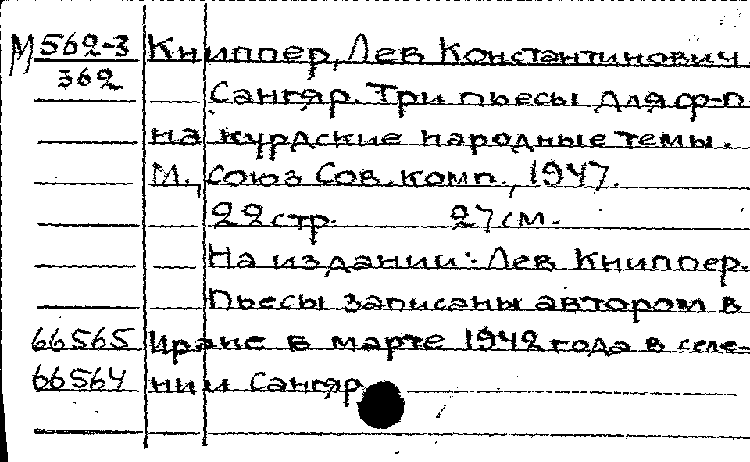 М 562-3 Книппер, Лев Константинович.
362 Сангяр. Три пьесы для ф-п
на курдские народные темы.
М., Союз Сов. комп., 1947.
22 стр. 27 см.
На издании: Лев Книппер.
Пьесы записаны автором в
66565 Иране в марте 1942 года в селе-
66564 нии Сангяр